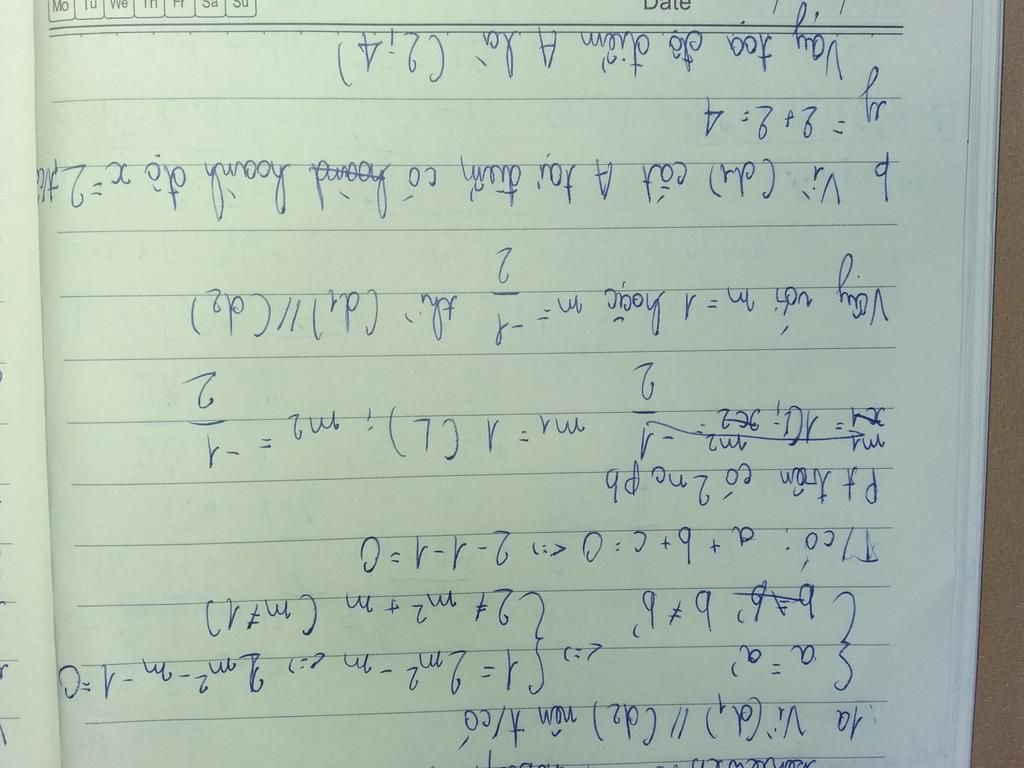 1a Vì (d1) // (d2) nên t/có
{ a = a' <=> { 1 = 2m² - m <=> 2m² - m - 1 = 0
{ b ≠ b' b ≠ b' { 2 ≠ m² + m (m ≠ 1)
T/có: a + b + c = 0 <=> 2 - 1 - 1 = 0
Pt trên có 2 no pb
m1 = 1 (L); m2 = -1/2
Vậy với m = 1 hoặc m = -1/2 thì (d1) // (d2)
b Vì (d1) cắt A tại điểm có hoành hoành độ x = 2
y = 2 + 2 = 4
Vay toạ độ điểm A là (2; 4)
Date
Mo Tu We Th Fr Sa Su